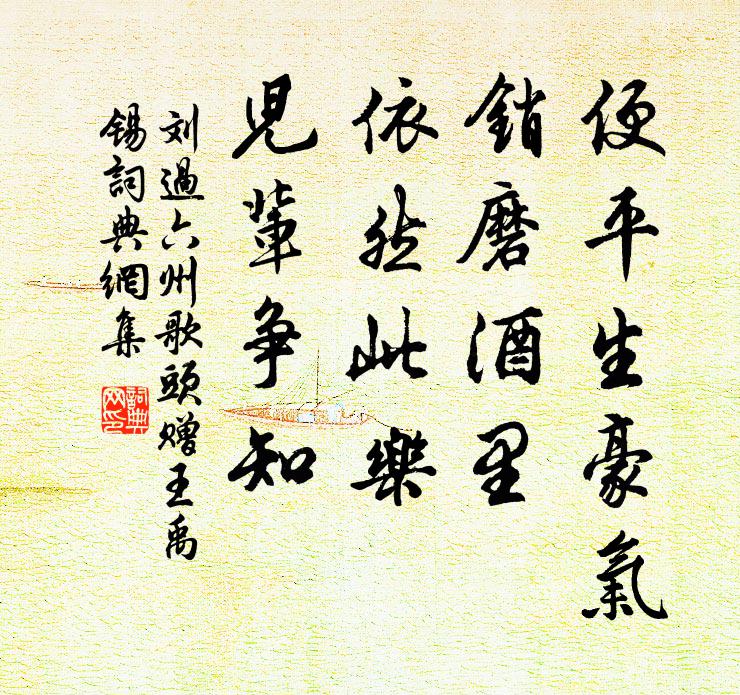 便平生豪氣
銷磨酒里
依然此樂
児輩争知
刘過六州歌頭赠王禹
錫詞典網集
詞典
网印